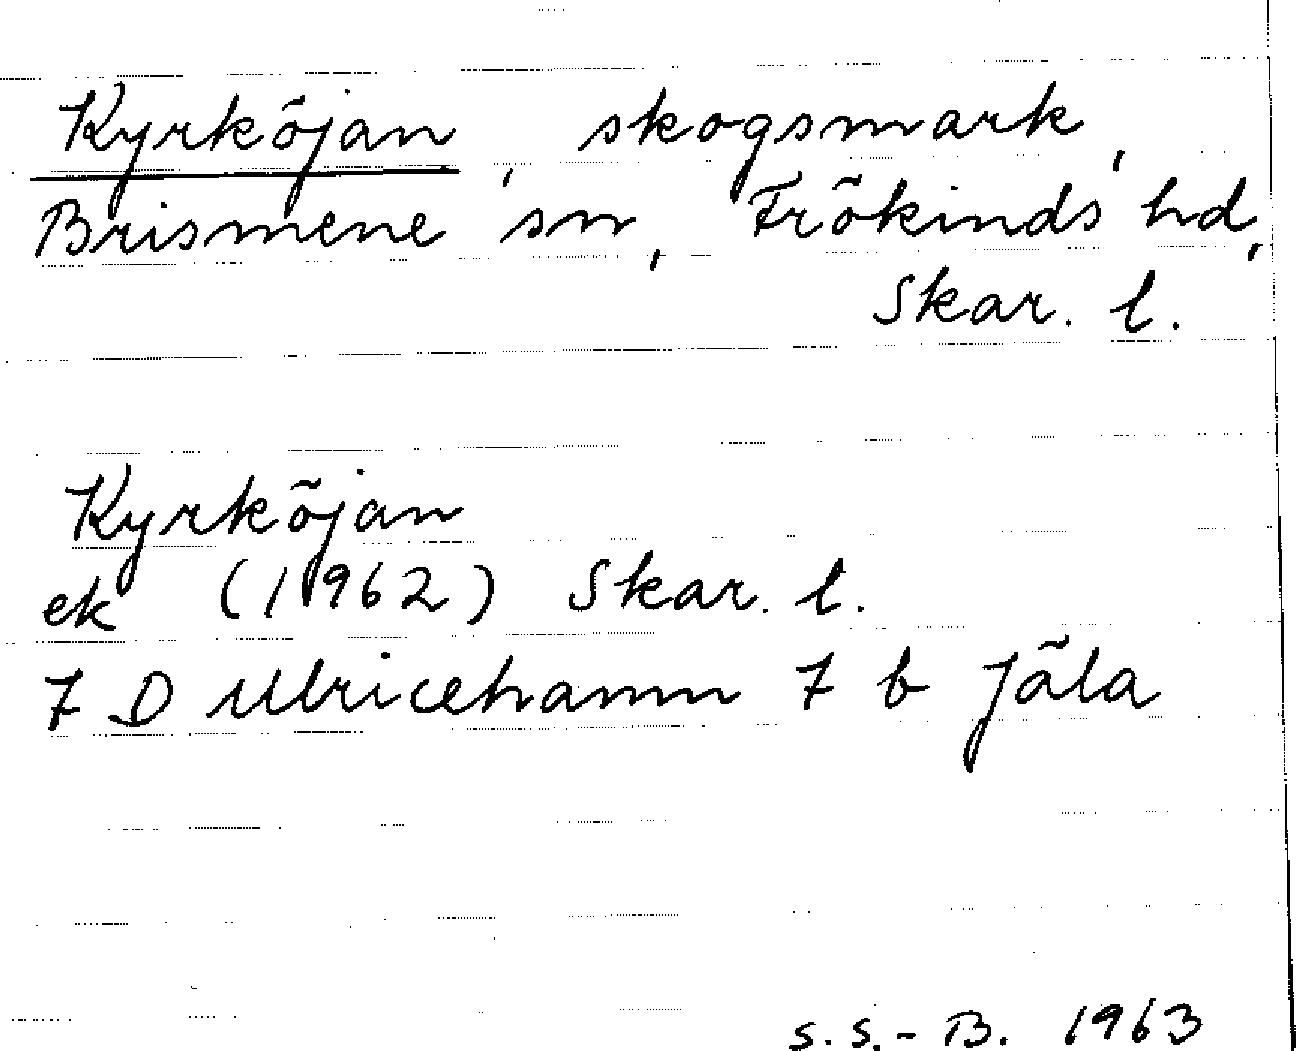 Kyrköjan, skogsmark,
Brismene sn, Frökinds hd,
Skar. l.
Kyrköjan
ek (1962) Skar. l.
7 D Ulricehamn 7 b Jäla
S. S.-B. 1963